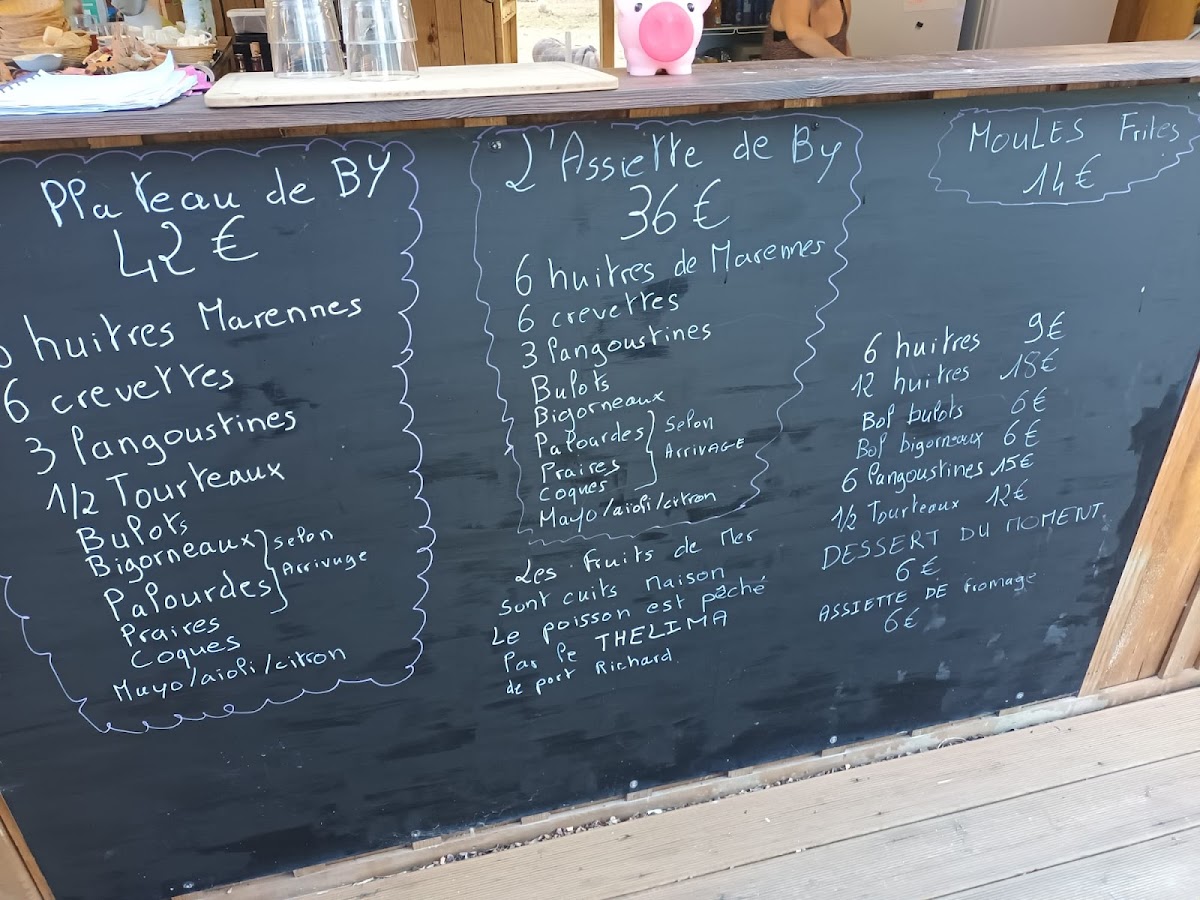 Plateau de BY
42 €
huitres Marennes
6 crevettes
3 langoustines
1/2 Tourteaux
Bulots
Bigorneaux
Palourdes
selon
Arrivage
Praires
Coques
Mayo/aioli/citron
L'Assiette de By
36 €
6 huitres de Marennes
6 crevettes
3 langoustines
Bulots
Bigorneaux
Palourdes
Praires
Coques
selon
ARRIVAGE
Mayo/aioli/citron
Les fruits de Mer
sont cuits Maison
Le poisson est pêché
Par le THELIMA
de port Richard.
MOULES Frites
14 €
6 huitres 9€
12 huitres 18€
Bol bulots 6€
Bol bigorneaux 6€
6 langoustines 15€
1/2 Tourteaux 12€
DESSERT DU MOMENT.
6€
ASSIETTE DE fromage
6€